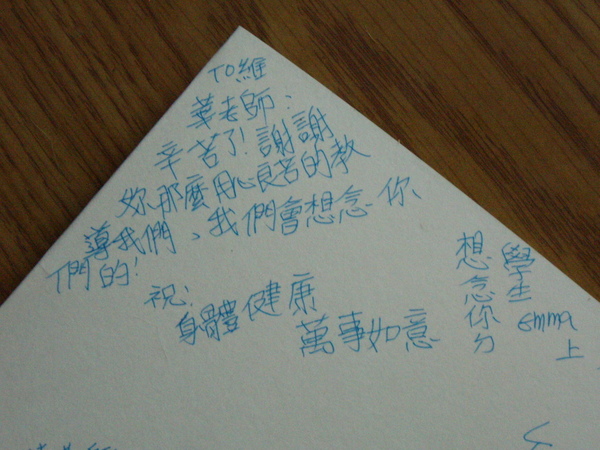 TO維
華老師:
辛苦了!謝謝
妳那麼用心良苦的教
導我們、我們會想念你
們的!
祝:
身體健康
萬事如意
想念你ㄉ
學生
emma
上